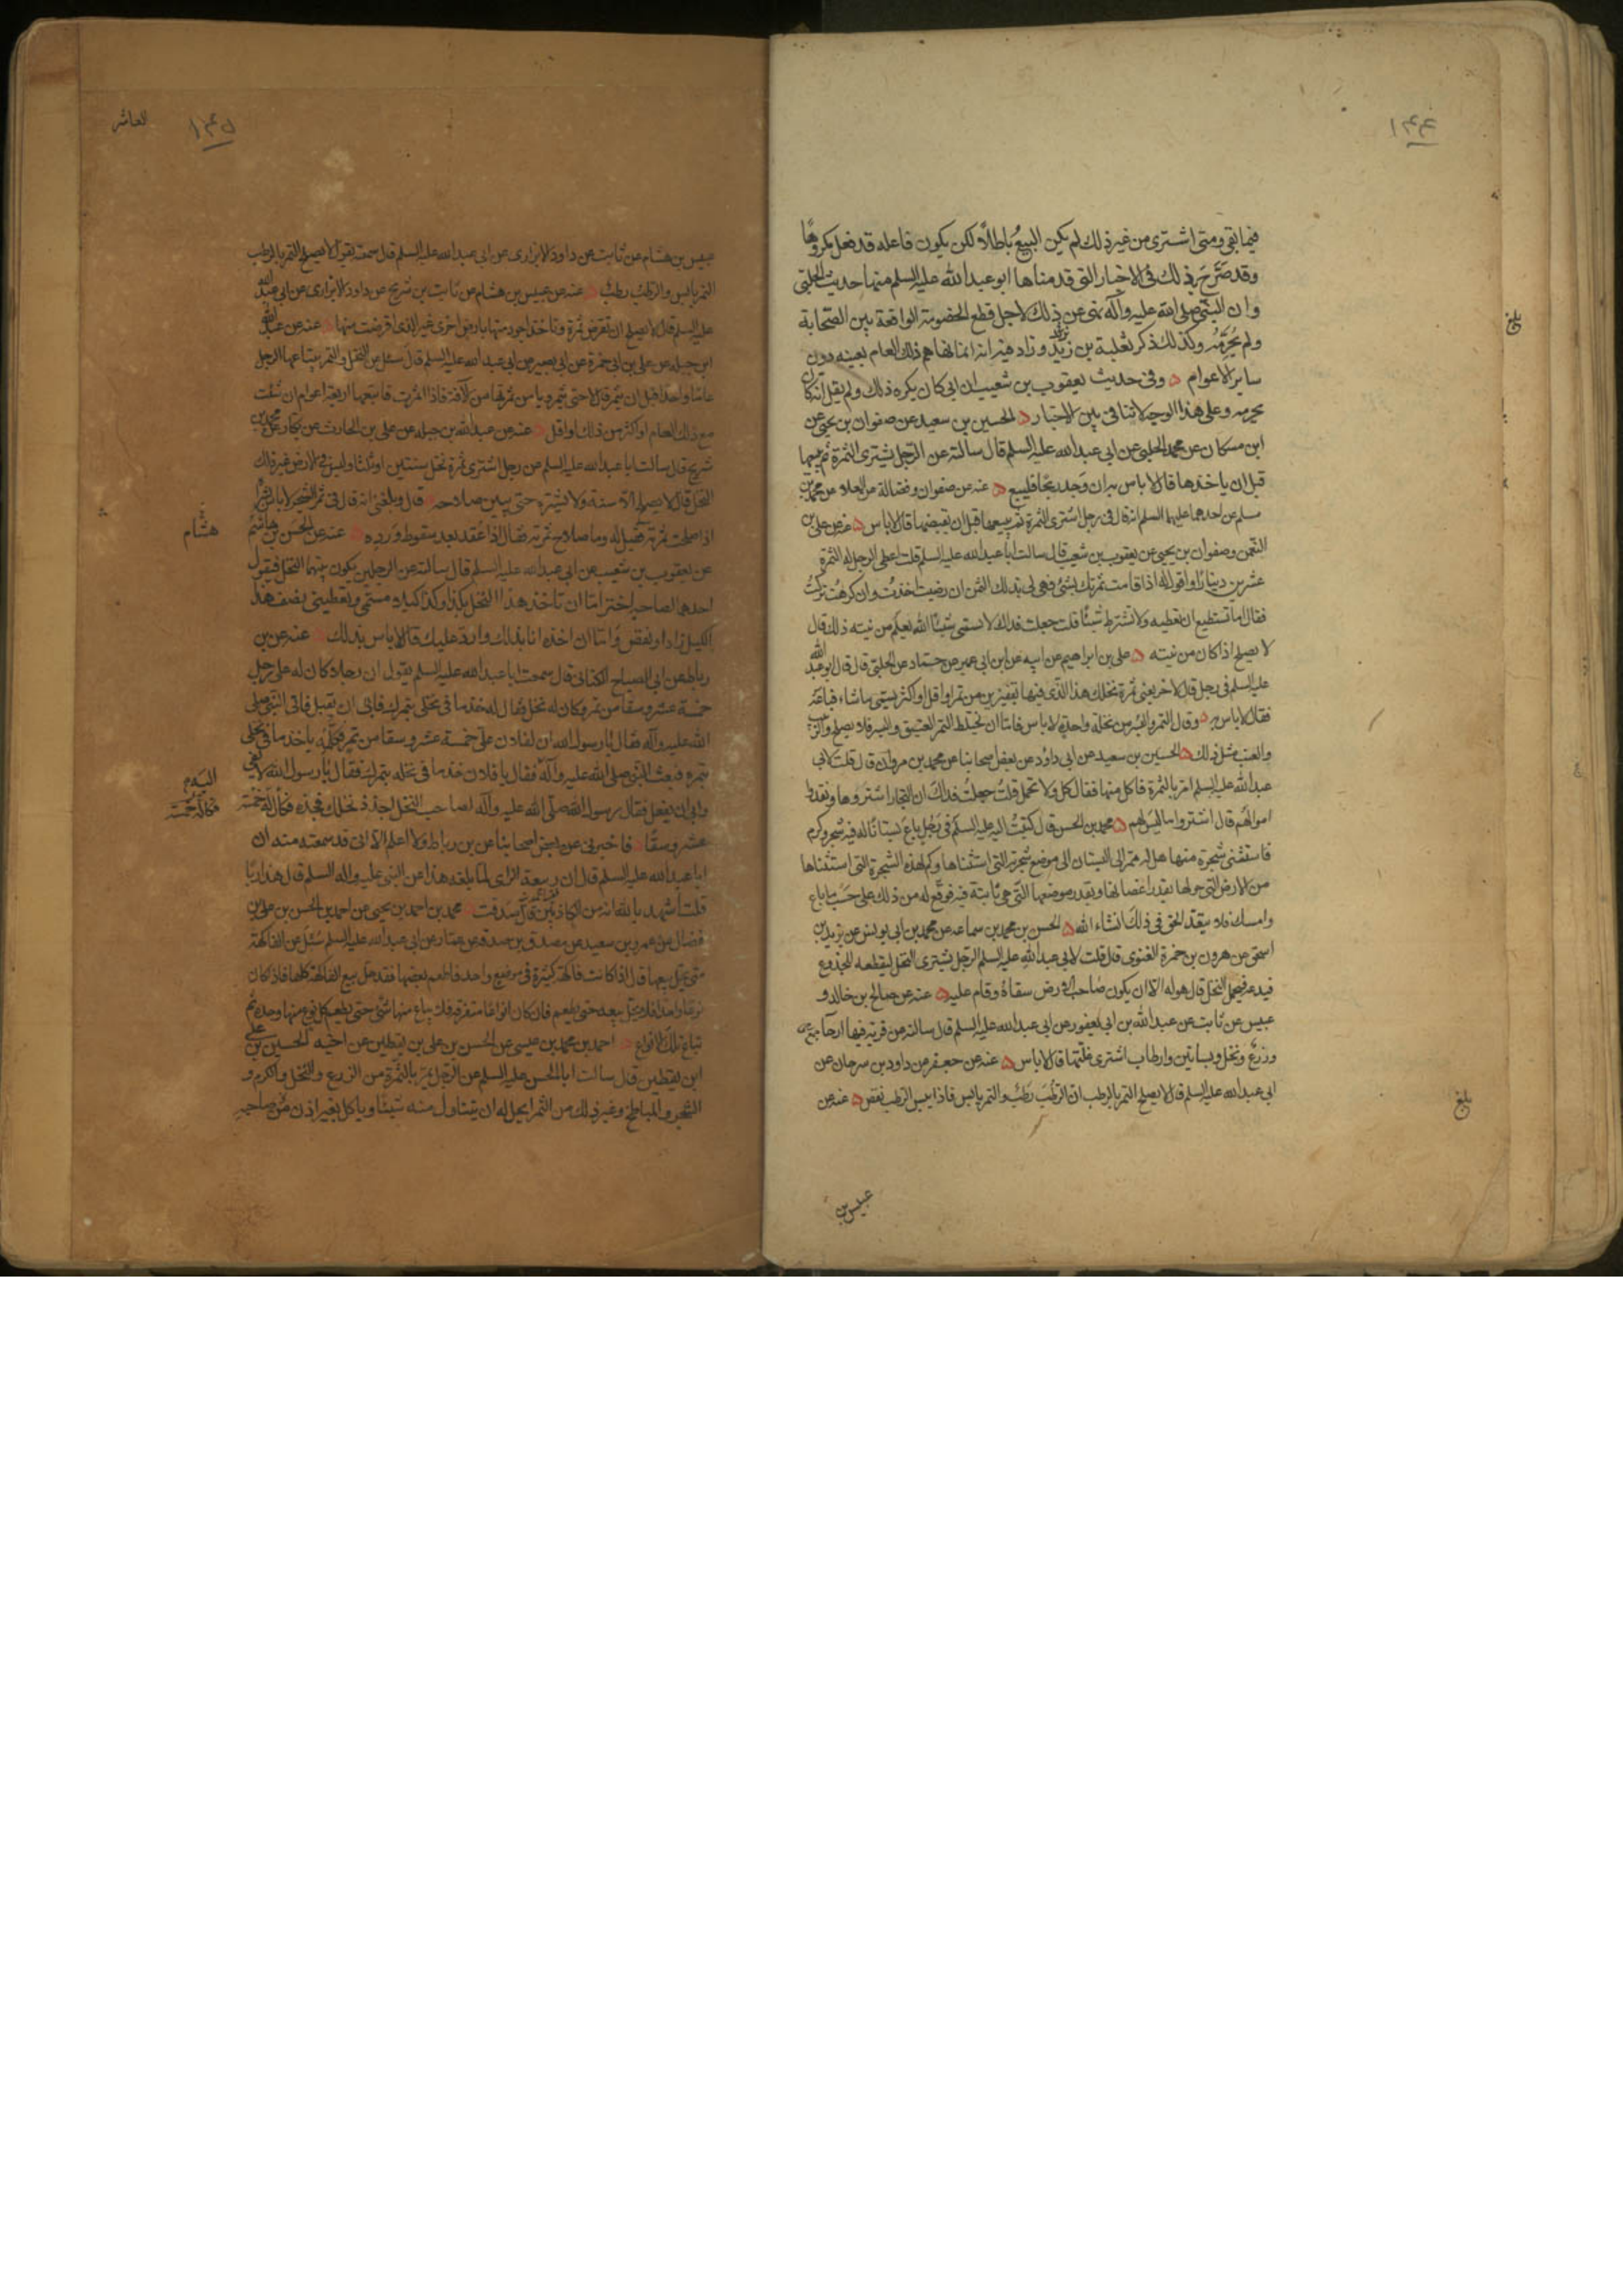 ١٤٤
فيما بقى ومتى اشترى من غير ذلك لم يكن البيع باطلا لكن يكون فاعله قد فعل مكروها
وقد صرح بذلك فى الاخبار التى قدمناها ابو عبد الله عليه السلم منها حديث الحلبى
وان النبى صلى الله عليه وآله نهى عن ذلك لاجل قطع الخصومة الواقعة بين الصحابة
ولم يحرمه وكذلك ذكر ثعلبة بن زيد وزاد فيه انه انما نهاهم ذلك العام بعينه دون
ساير الاعوام وفى حديث يعقوب بن شعيب ان ابى كان يكره ذلك ولم يقل انه كان
يحرمه وعلى هذا الوجه لا تنافى بين الاخبار الحسين بن سعيد عن صفوان بن يحيى عن
ابن مسكان عن محمد الحلبى عن ابى عبد الله عليه السلم قال سالته عن الرجل يشترى الثمرة ثم يبيعها
قبل ان ياخذها قال لا باس به ان وجد ربحا فليبع عنه عن صفوان وفضالة عن العلا عن محمد بن
مسلم عن احدهما عليهما السلم انه قال فى رجل اشترى الثمرة ثم يبيعها قبل ان يقبضها قال لا باس عنه عن على بن
النعمن وصفوان بن يحيى عن يعقوب بن شعيب قال سالت ابا عبد الله عليه السلم قلت اعطى الرجل له الثمرة
عشرين دينارا واقول له اذا قامت ثمرتك بشئ فهى لى بذلك الثمن ان رضيت اخذت وان كرهت تركت
فقال اما تستطيع ان تعطيه ولا تشترط شيئا قلت جعلت فداك لا يسمى شيئا الله يعلم من نيته ذلك قال
لا يصلح اذا كان من نيته على بن ابراهيم عن ابيه عن ابن ابى عمير عن حماد عن الحلبى قال قال ابو عبد الله
عليه السلم فى رجل قال لاخر بعنى ثمرة نخلك هذا الذى فيها بقفيزين من تمر او اقل او اكثر يسمى ما شاء فباعه
فقال لا باس به وقال التمر والبسر من نخلة واحدة لا باس فاما ان يختلط التمر العتيق والبسر فلا يصلح والزبيب
والعنب مثل ذلك الحسين بن سعيد عن ابى داود عن بعض اصحابنا عن محمد بن مروان قال قلت لابى
عبد الله عليه السلم امر بالثمرة فاكل منها فقال كل ولا تحمل قلت جعلت فداك ان التجار اشتروها ونقدوا
اموالهم قال اشتروا ما ليس لهم محمد بن الحسن قال كتبت اليه عليه السلم فى رجل باع بستانا له فيه شجر وكرم
فاستثنى شجرة منها هل له ممر الى البستان الى موضع شجرته التى استثناها وكم لهذه الشجرة التى استثناها
من الارض التى حولها بقدر اغصانها او بقدر موضعها التى هى نابتة فيه فوقع له من ذلك على حسب ما باع
وامسك فلا يتعد الحق فى ذلك انشاء الله الحسن بن محمد بن سماعه عن محمد بن ابى يونس عن يزيد بن
اسحق عن هرون بن حمزة الغنوى قال قلت لابى عبد الله عليه السلم الرجل يشترى النخل ليقطعه للجذوع
فيدعه فيحمل النخل قال هو له الا ان يكون صاحب الارض سقاه وقام عليه عنه عن صالح بن خالد و
عبيس عن ثابت عن عبد الله بن ابى يعفور عن ابى عبد الله عليه السلم قال سالته عن قرية فيها ارحآ
وزرع ونخل وبساتين وارطاب اشترى غلتها قال لا باس عنه عن جعفر عن داود بن سرحان عن
ابى عبد الله عليه السلم قال لا يصلح التمر بالرطب ان الرطب رطب والتمر يابس فاذا يبس الرطب نقص عنه عن
عبيس بن
بلغ
بلغ
العاشر
١٤٥
عبيس بن هشام عن ثابت عن داود الابزارى عن ابى عبد الله عليه السلم قال سمعته يقول لا يصلح التمر بالرطب
التمر يابس والرطب رطب عنه عن عبيس بن هشام عن ثابت بن شريح عن داود الابزارى عن ابى عبد الله
عليه السلم قال لا يصلح ان تقرض ثمرة وتاخذ اجود منها بارض اخرى غير الذى اقرضت منها عنه عن عبد الله
ابن جبله عن على بن ابى حمزة عن ابى بصير عن ابى عبد الله عليه السلم قال سئل عن النخل والتمر يبتاعها الرجل
عاما واحدا قبل ان يثمر قال لا حتى يثمر ويامن ثمرتها من الآفة فاذا اثمرت فابتعها اربعة اعوام ان شئت
مع ذلك العام او اكثر من ذلك او اقل عنه عن عبد الله بن جبله عن على بن الحارث عن بكار عن محمد بن
شريح قال سالت ابا عبد الله عليه السلم عن رجل اشترى ثمرة نخل سنتين او ثلثا وليس فى الارض غير ذلك
النخل قال لا يصلح الا سنة ولا تشتره حتى يبين صلاحه قال وبلغنى انه قال فى ثمر الشجر لا باس بشرائه
اذا صلحت ثمرته فقيل له وما صلاح ثمرته فقال اذا عقد بعد سقوط ورده عنه عن الحسن بن هاشم
عن يعقوب بن شعيب عن ابى عبد الله عليه السلم قال سالته عن الرجلين يكون بينهما النخل فيقول
احدهما لصاحبه اختر اما ان تاخذ هذا النخل بكذا وكذا كيلا مسمى وتعطينى نصف هذا
الكيل زاد او نقص واما ان اخذه انا بذلك وارد عليك قال لا باس بذلك عنه عن بن
رباط عن ابى الصباح الكنانى قال سمعت ابا عبد الله عليه السلم يقول ان رجلا كان له على رجل
خمسة عشر وسقا من تمر وكان له نخل فقال له خذ ما فى نخلى بتمرك فابى ان يقبل فاتى النبى صلى
الله عليه وآله فقال يا رسول الله ان لفلان على خمسة عشر وسقا من تمر فكلمه ياخذ ما فى نخلى
بتمره فبعث النبى صلى الله عليه وآله فقال يا فلان خذ ما فى نخله بتمرك فقال يا رسول الله لا يفى
وابى ان يفعل فقال رسول الله صلى الله عليه وآله لصاحب النخل اجذذ نخلك فجذه فكال له خمسة
عشر وسقا فاخبرنى عن بعض اصحابنا عن بن رباط ولا اعلم الا انى قد سمعته منه ان
ابا عبد الله عليه السلم قال ان ربيعة الراى لما بلغه هذا عن النبى عليه واله السلم قال هذا ربا
قلت اشهد بالله انه من الكاذبين قال صدقت محمد بن احمد بن يحيى عن احمد بن الحسن بن على بن
فضال عن عمرو بن سعيد عن مصدق بن صدقه عن عمار عن ابى عبد الله عليه السلم سئل عن الفاكهة
متى يحل بيعها قال اذا كانت فاكهة كثيرة فى موضع واحد فاطعم بعضها فقد حل بيع الفاكهة كلها فاذا كان
نوعا واحدا فلا يحل بيعه حتى يطعم فان كان انواعا متفرقة فلا يباع منها شئ حتى يطعم كل نوع منها وحده ثم
تباع تلك الانواع احمد بن محمد بن عيسى عن الحسن بن على بن يقطين عن اخيه الحسين بن على
ابن يقطين قال سالت ابا الحسن عليه السلم عن الرجل يمر بالثمرة من الزرع والنخل والكرم و
الشجر والمباطخ وغير ذلك من الثمر ايحل له ان يتناول منه شيئا وياكل بغير اذن من صاحبه
هشام